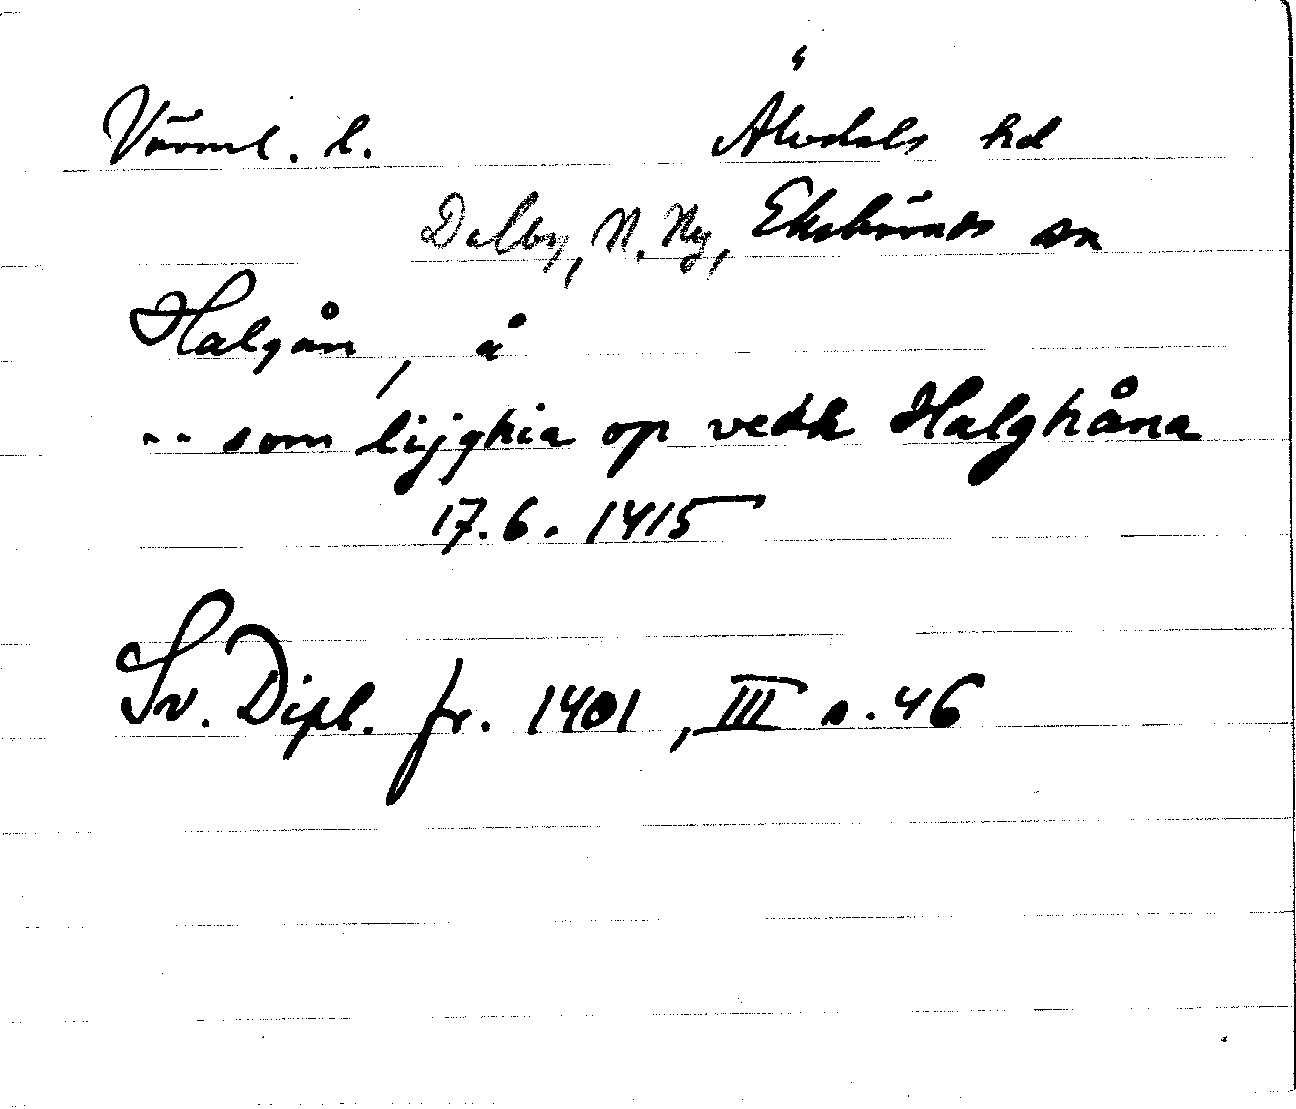 Värml. l. Älvdals hd
Dalby, N. Ny, Ekshärads sn
Halgån, å
.. som lijghia op vedh Halghåna
17.6. 1415
Sv. Dipl. fr. 1401, III s. 46